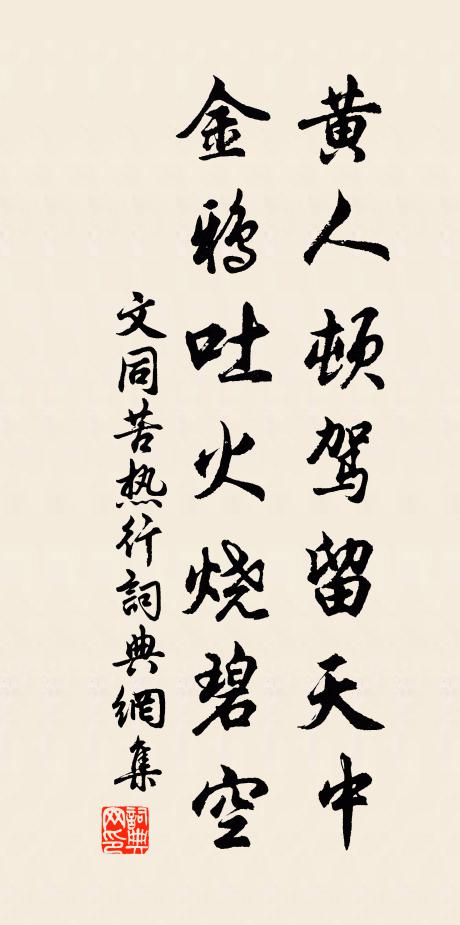 黄人顿驾留天中
金鸦吐火烧碧空
文同苦热行詞典網集
詞典網印